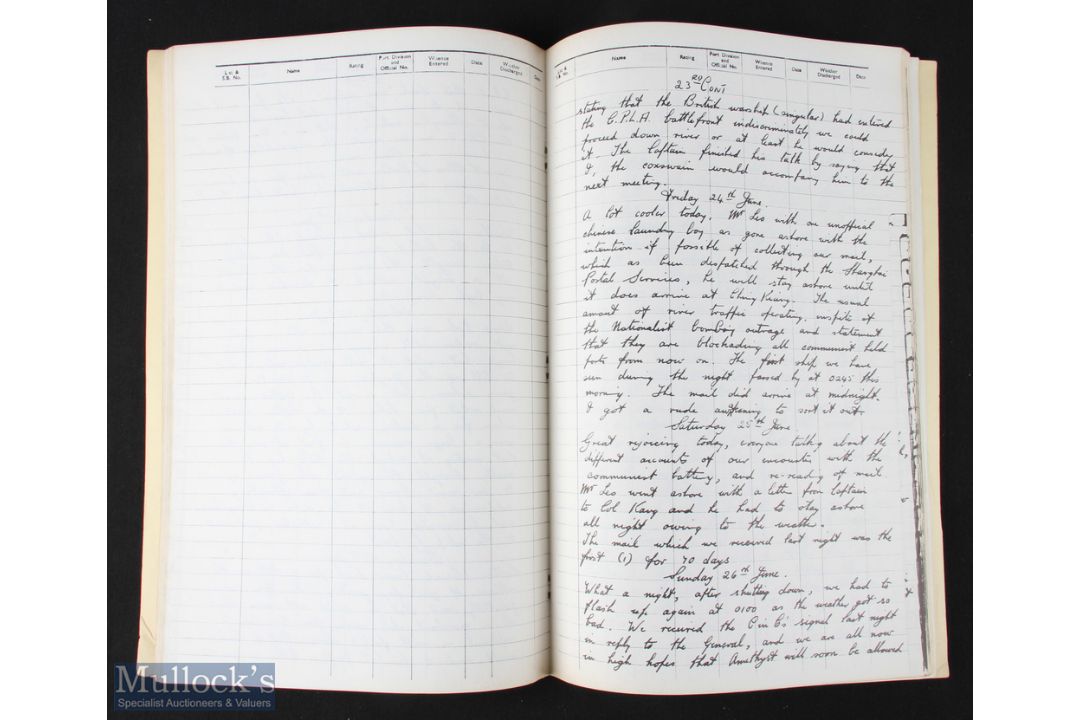 List & S.B. No. Name Rating Port Division and Official No. Whence Entered Date Whither Discharged Date
List & S.B. No. Name Rating Port Division and Official No. Whence Entered Date Whither Discharged Date
23RD Cont
stating that the British warship (singular) had entered
the C.P.L.A. battlefront indiscriminately we could
proceed down river or at least he would consider
it. The Captain finished his talk by saying that
I, the coxswain would accompany him to the
next meeting.
Friday 24th June.
A lot cooler today. Mr Leo with one unofficial
chinese laundry boy as gone ashore with the
intention if possible of collecting our mail,
which as been despatched through the Shanghai
Postal Services, he will stay ashore until
it does arrive at Ching Kiang. The usual
amount of river traffic operating, inspite of
the Nationalist bombing outrage and statement
that they are blockading all communist held
ports from now on. The first ship we have
seen during the night passed by at 0245 this
morning. The mail did arrive at midnight.
I got a rude awakening to sort it out.
Saturday 25th June
Great rejoicing today, everyone talking about the
different accounts of our encounter with the
communist battery, and re-reading of mail.
Mr Leo went ashore with a letter from Captain
to Col Kang and he had to stay ashore
all night owing to the weather.
The mail which we received last night was the
first (1) for 70 days
Sunday 26th June.
What a night, after shutting down, we had to
flash up again at 0100 as the weather got so
bad. We received the C in C's signal last night
in reply to the General, and we are all now
in high hopes that Amethyst will soon be allowed
Mullock's
Specialist Auctioneers & Valuers